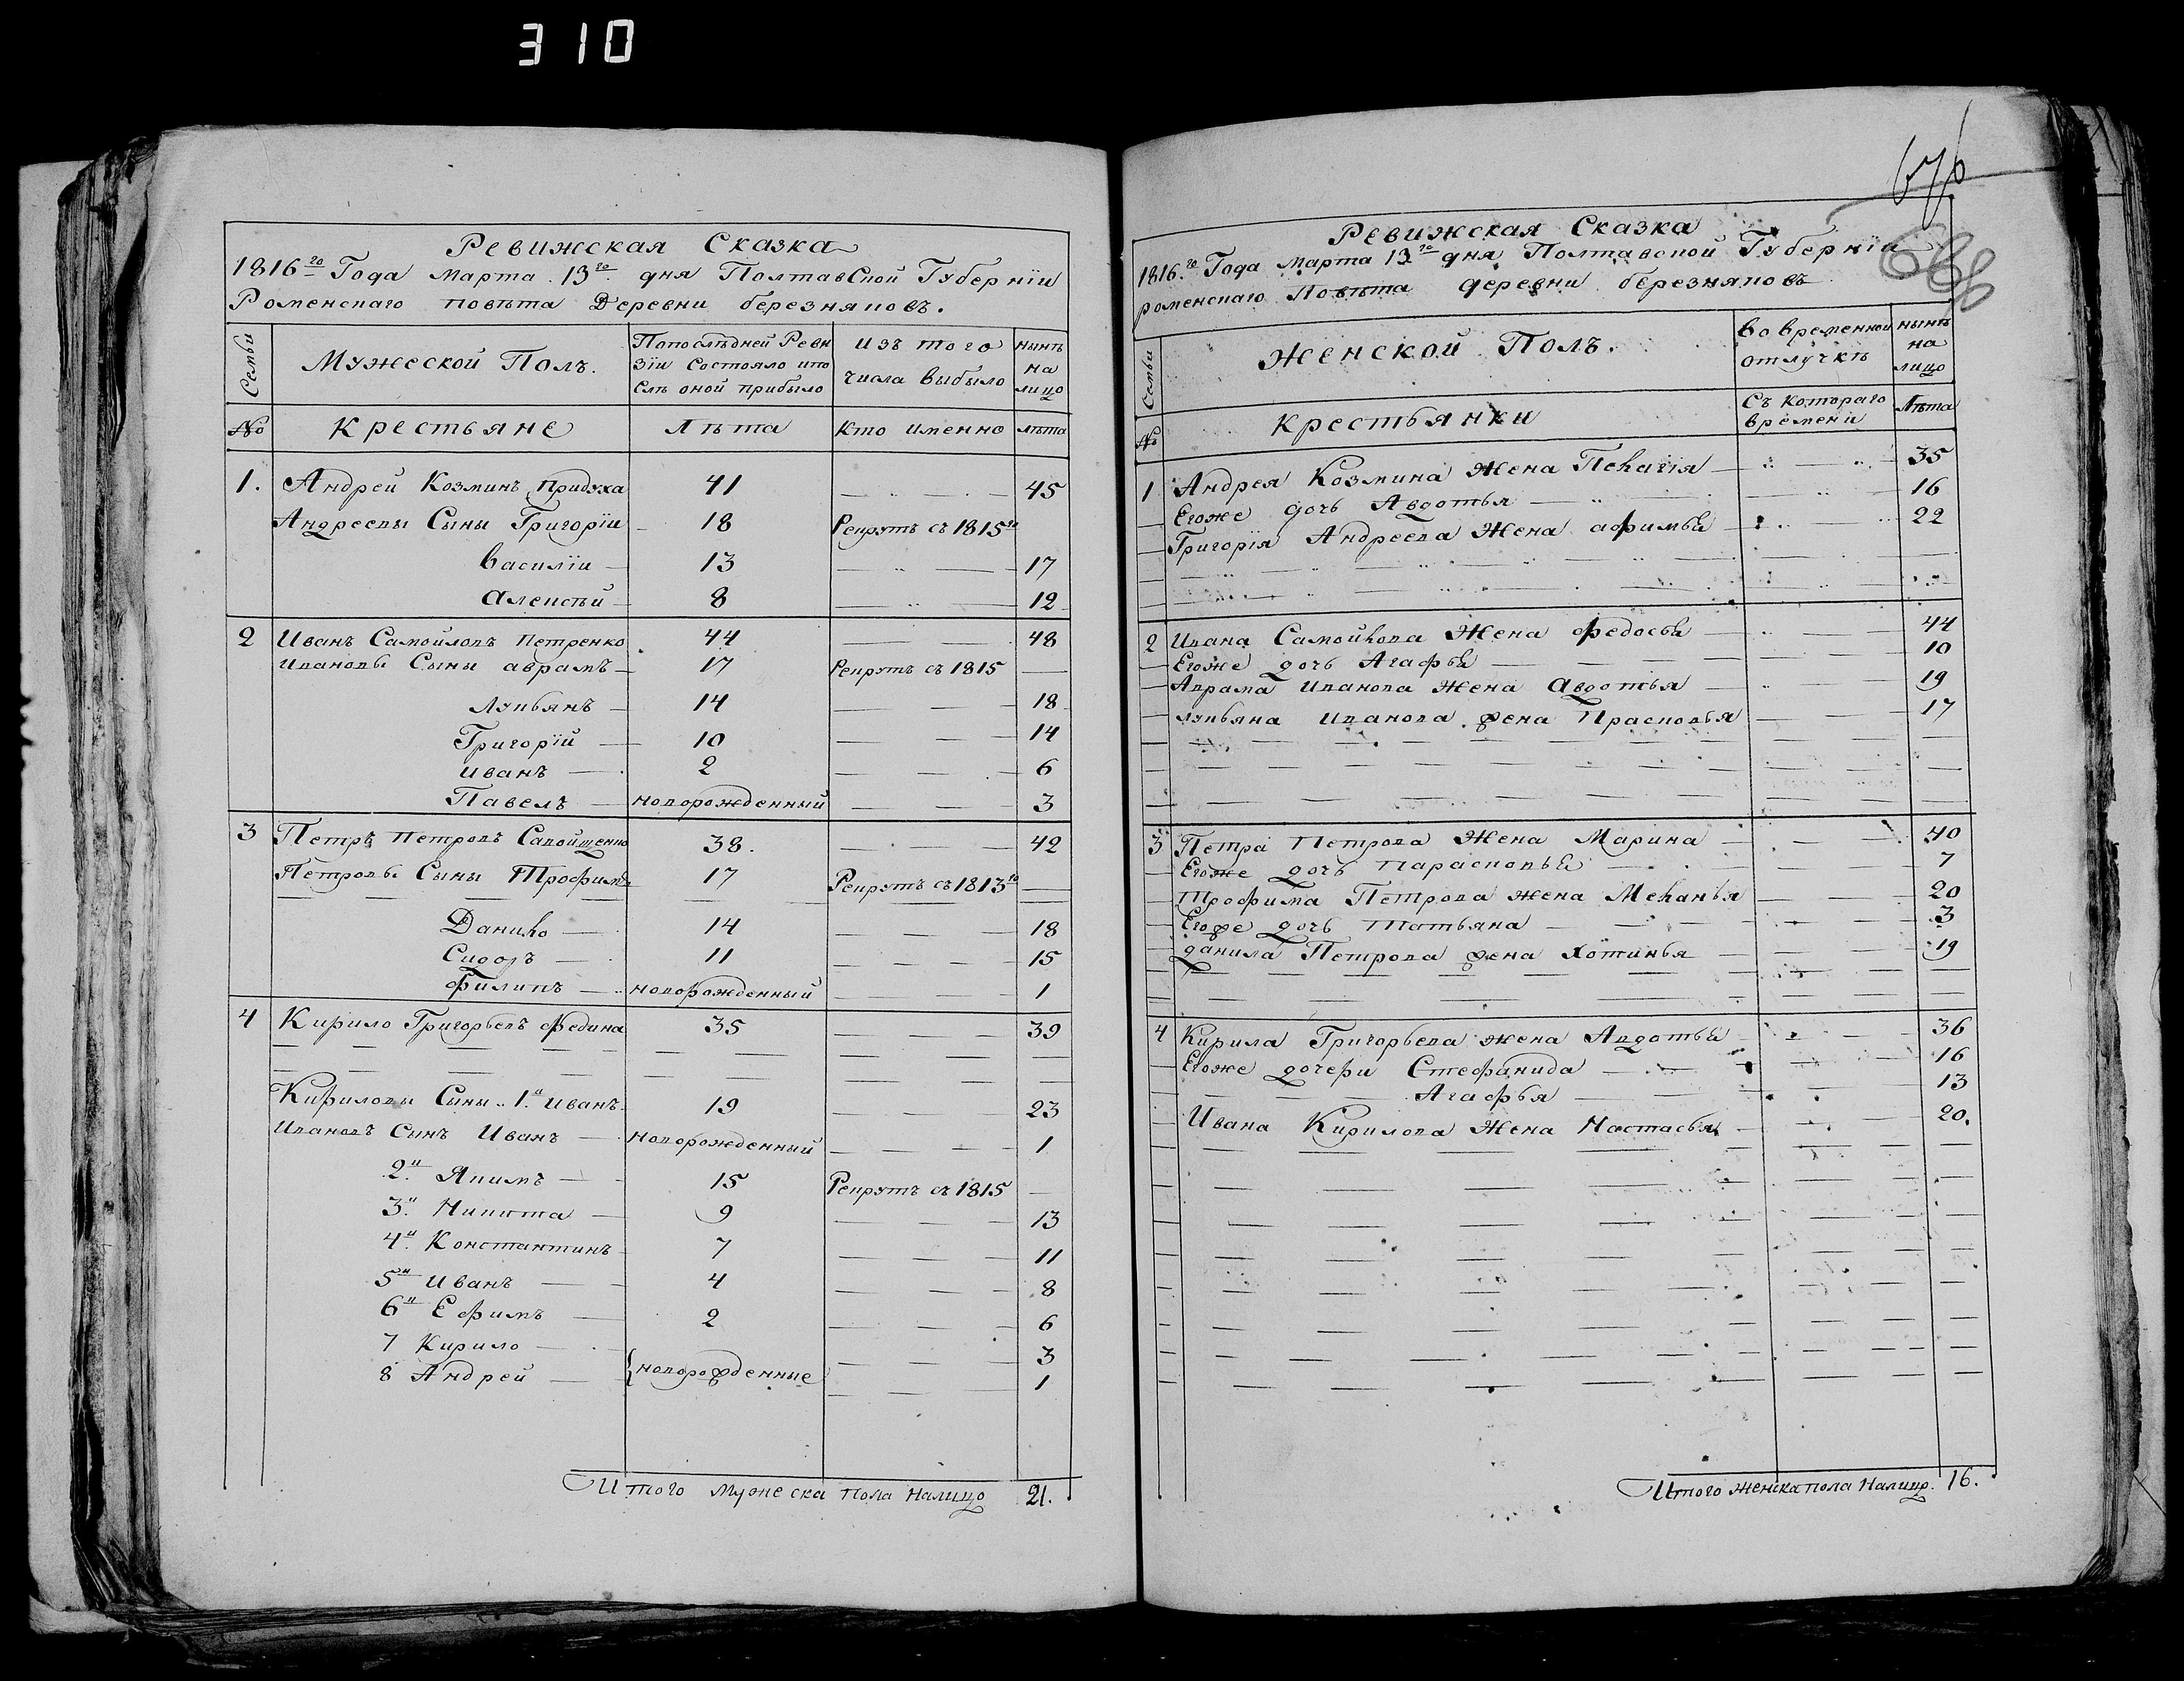 310
Ревижская Сказка
1816го Года Марта 13го дня Полтавской Губернїи
Роменскаго повѣта Деревни березняковъ.
Семьи
Мужеской Полъ.
Попослѣдней Реви
зїи Состояло ипо
слѣ оной прибыло
Изъ того
числа выбыло
нынѣ
на
лицо
№
Крестьяне
Лѣта
Кто именно
лѣта
1. Андрей Козминъ Придуха 41 45
Андреевы Сыны Григорїи 18 Рекрутъ съ 1815го
Василїи 13 17
Алексѣй 8 12
2 Иванъ Самойловъ Петренко 44 48
Ивановы Сыны аврамъ 17 Рекрутъ съ 1815
Лукьянъ 14 18
Григорїй 10 14
иванъ 2 6
Павелъ новорожденный 3
3 Петръ Петровъ 38. 42
Петровы Сыны Трофимъ 17 Рекрутъ съ 1813го
Данило 14 18
Сидоръ 11 15
Филипъ новорожденный 1
4 Кирило Григорьевъ Федина 35 39
Кириловы Сыны 1й Иванъ 19 23
Ивановъ Сынъ Иванъ новорожденный 1
2й Якимъ 15 Рекрутъ съ 1815
3й Никита 9 13
4й Константинъ 7 11
5й Иванъ 4 8
6й Ефимъ 2 6
7 Кирило 3
8 Андрей новорожденные 1
Итого мужеска пола налицо 21.
676
668
Ревижская Сказка
1816го Года Марта 13го дня Полтавской Губернїи
роменскаго Повѣта деревни березняковъ
Семьи
Женской Полъ.
во временной
отлучкѣ
нынѣ
на
лицо
№
Крестьянки
Съ котораго
времени
Лѣта
1 Андрея Козмина Жена Пелагїя 35
Егоже дочь Авдотья 16
Григорїя Андреева Жена афимья 22
2 Ивана Самойлова Жена федосья 44
Егоже дочь Агафья 10
Аврама Иванова Жена Авдотья 19
лукьяна Иванова жена Прасковья 17
3 Петра Петрова Жена Марина 40
Егоже дочь Парасковья 7
Трофима Петрова жена Меланья 20
Егоже дочь Татьяна 3
данила Петрова жена Хотинья 19
4 Кирила Григорьева жена Авдотья 36
Егоже дочери Стефанида 16
Агафья 13
Ивана Кирилова Жена Настасья 20.
Итого женска пола Налицо. 16.